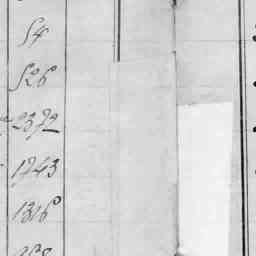 54
526
2372
1743
1316